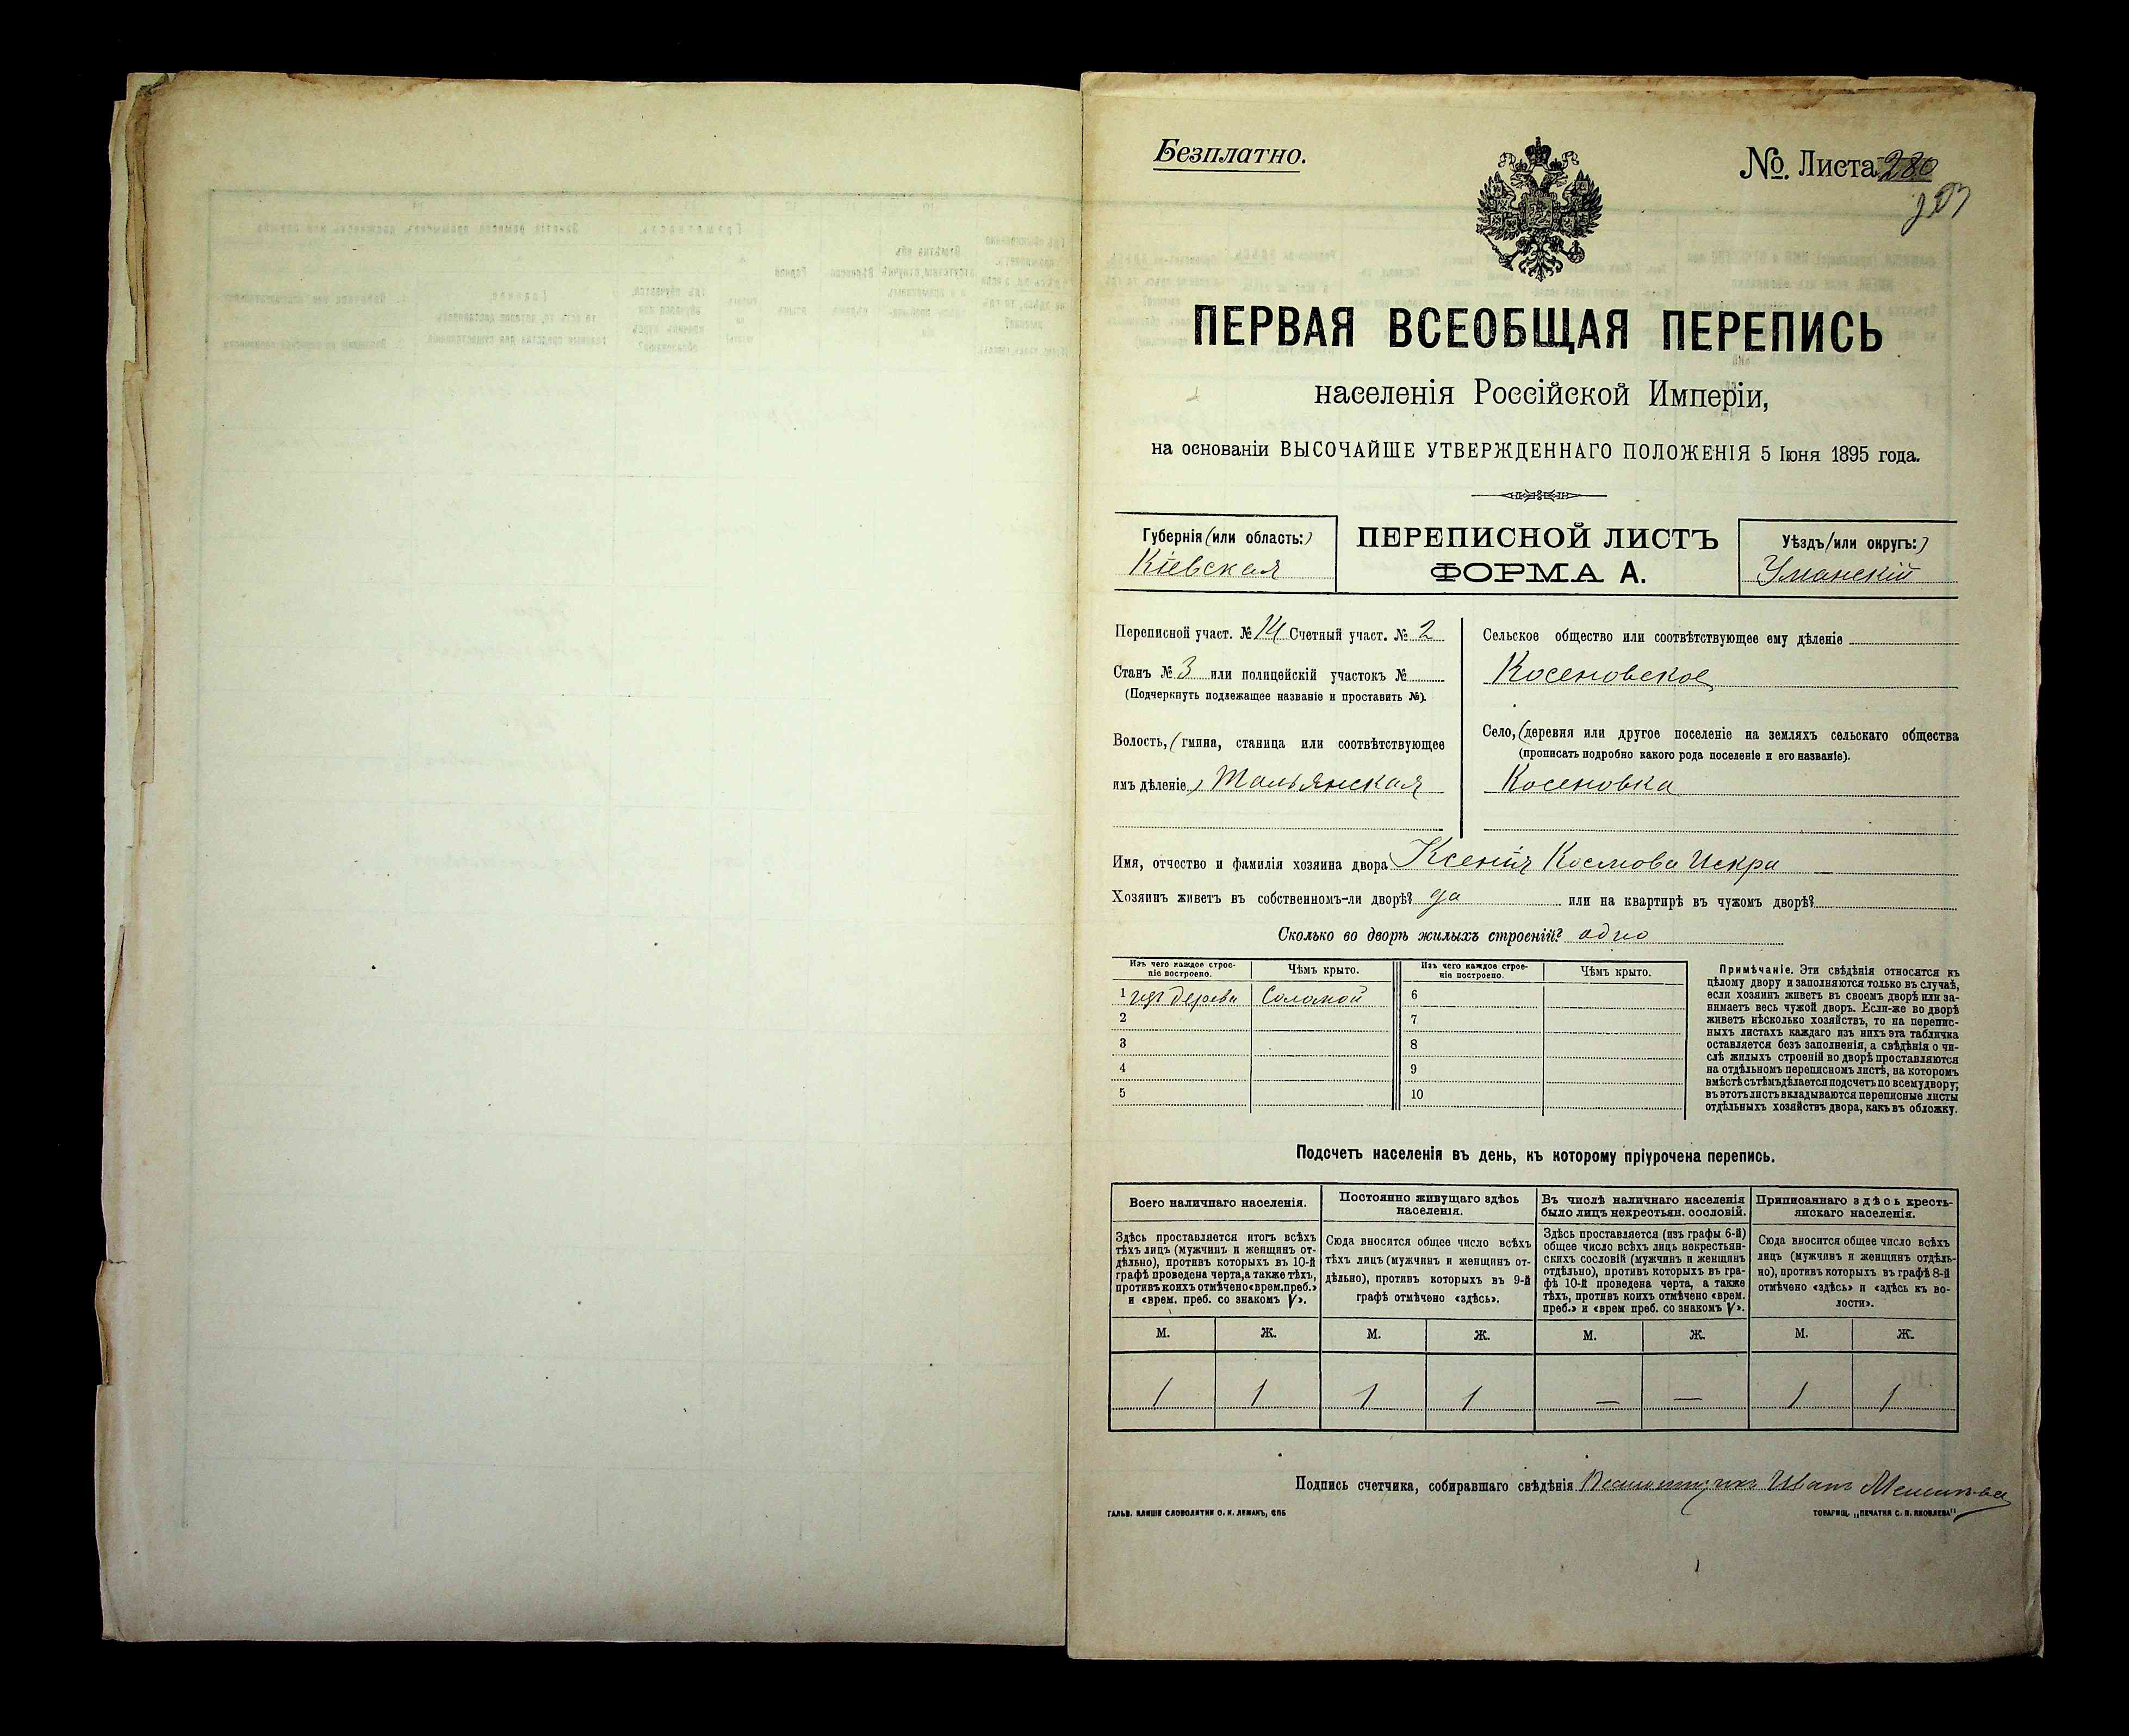 Безплатно.
№. Листа 280
ПЕРВАЯ ВСЕОБЩАЯ ПЕРЕПИСЬ
населенія Россійской Имперіи,
на основаніи ВЫСОЧАЙШЕ УТВЕРЖДЕННАГО ПОЛОЖЕНІЯ 5 Іюня 1895 года.
Губернія (или область:)
Кіевская
ПЕРЕПИСНОЙ ЛИСТЪ
ФОРМА А.
Уѣздъ (или округъ:)
Уманскій
Переписной участ. № 14 Счетный участ. № 2
Станъ № 3 или полицейскій участокъ №
(Подчеркнуть подлежащее названіе и проставить №).
Волость, (гмина, станица или соотвѣтствующее
имъ дѣленіе) Тальянская
Сельское общество или соотвѣтствующее ему дѣленіе
Косеновское
Село, (деревня или другое поселеніе на земляхъ сельскаго общества
(прописать подробно какого рода поселеніе и его названіе).
Косеновка
Имя, отчество и фамилія хозяина двора Ксенія Космова Искра
Хозяинъ живетъ въ собственномъ-ли дворѣ? да или на квартирѣ въ чужомъ дворѣ?
Сколько во дворѣ жилыхъ строеній? одно
Изъ чего каждое строе-
ніе построено.
Чѣмъ крыто.
Изъ чего каждое строе-
ніе построено.
Чѣмъ крыто.
1 изъ дерева Соломой 6
2 7
3 8
4 9
5 10
Примѣчаніе. Эти свѣдѣнія относятся къ
цѣлому двору и заполняются только въ случаѣ,
если хозяинъ живетъ въ своемъ дворѣ или за-
нимаетъ весь чужой дворъ. Если-же во дворѣ
живетъ нѣсколько хозяйствъ, то на перепис-
ныхъ листахъ каждаго изъ нихъ эта табличка
оставляется безъ заполненія, а свѣдѣнія о чи-
слѣ жилыхъ строеній во дворѣ проставляются
на отдѣльномъ переписномъ листѣ, на которомъ
вмѣстѣ съ тѣмъ дѣлается подсчетъ по всему двору;
въ этотъ листъ вкладываются переписные листы
отдѣльныхъ хозяйствъ двора, какъ въ обложку.
Подсчетъ населенія въ день, къ которому пріурочена перепись.
Всего наличнаго населенія.
Здѣсь проставляется итогъ всѣхъ
тѣхъ лицъ (мужчинъ и женщинъ от-
дѣльно), противъ которыхъ въ 10-й
графѣ проведена черта, а также тѣхъ,
противъ коихъ отмѣчено «врем. преб.»
и «врем. преб. со знакомъ V».
Постоянно живущаго здѣсь
населенія.
Сюда вносятся общее число всѣхъ
тѣхъ лицъ (мужчинъ и женщинъ от-
дѣльно), противъ которыхъ въ 9-й
графѣ отмѣчено «здѣсь».
Въ числѣ наличнаго населенія
было лицъ некрестьян. сословій.
Здѣсь проставляется (изъ графы 6-й)
общее число всѣхъ лицъ некрестьян-
скихъ сословій (мужчинъ и женщинъ
отдѣльно), противъ которыхъ въ гра-
фѣ 10-й проведена черта, а также
тѣхъ, противъ коихъ отмѣчено «врем.
преб.» и «врем преб. со знакомъ V».
Приписаннаго здѣсь кресть-
янскаго населенія.
Сюда вносится общее число всѣхъ
лицъ (мужчинъ и женщинъ отдѣль-
но), противъ которыхъ въ графѣ 8-й
отмѣчено «здѣсь» и «здѣсь къ во-
лости».
М. Ж. М. Ж. М. Ж. М. Ж.
1 1 1 1 — — 1 1
Подпись счетчика, собиравшаго свѣдѣнія Иванъ
ГАЛЬВ. КЛИШЕ СЛОВОЛИТНИ О. И. ЛЕМАНЪ, СПБ
ТОВАРИЩ. „ПЕЧАТНЯ С. П. ЯКОВЛЕВА"